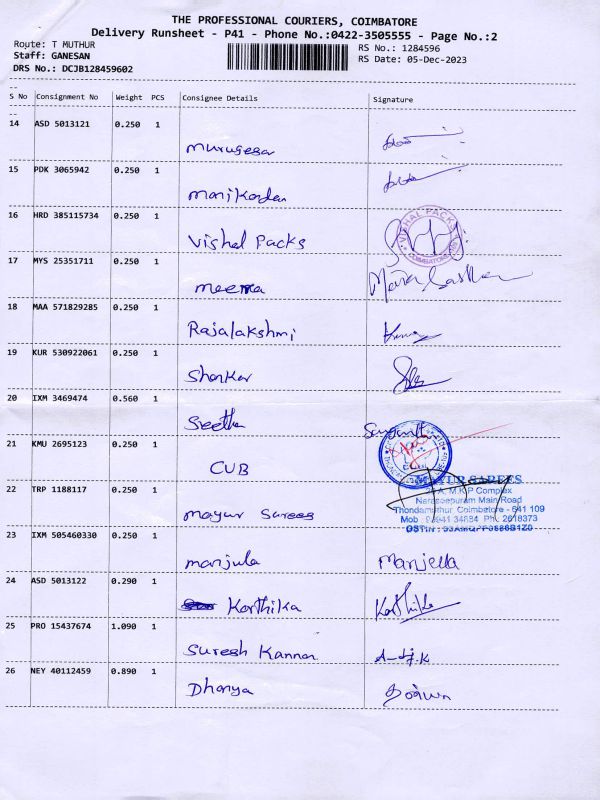 THE PROFESSIONAL COURIERS, COIMBATORE
Delivery Runsheet - P41 - Phone No.:0422-3505555 - Page No.:2
Route: T MUTHUR
Staff: GANESAN
DRS No.: DCJB128459602
RS No.: 1284596
RS Date: 05-Dec-2023
S No Consignment No Weight PCS Consignee Details Signature
14 ASD 5013121 0.250 1
Murugesan
15 PDK 3065942 0.250 1
Manikandan
16 HRD 385115734 0.250 1
Vishal Packs
VISHAL PACKS
COIMBATORE
17 MYS 25351711 0.250 1
meena
18 MAA 571829285 0.250 1
Rajalakshmi
19 KUR 530922061 0.250 1
Shankar
20 IXM 3469474 0.560 1
Seetha
21 KMU 2695123 0.250 1
CUB
22 TRP 1188117 0.250 1
mayur Sarees
SAREES
M.K.P Complex
Naraseepuram Main Road
Thondamuthur, Coimbatore - 641 109
23 IXM 505460330 0.250 1
manjula
24 ASD 5013122 0.290 1
Karthika Karthika
25 PRO 15437674 1.090 1
Suresh Kannan
26 NEY 40112459 0.890 1
Dhanya